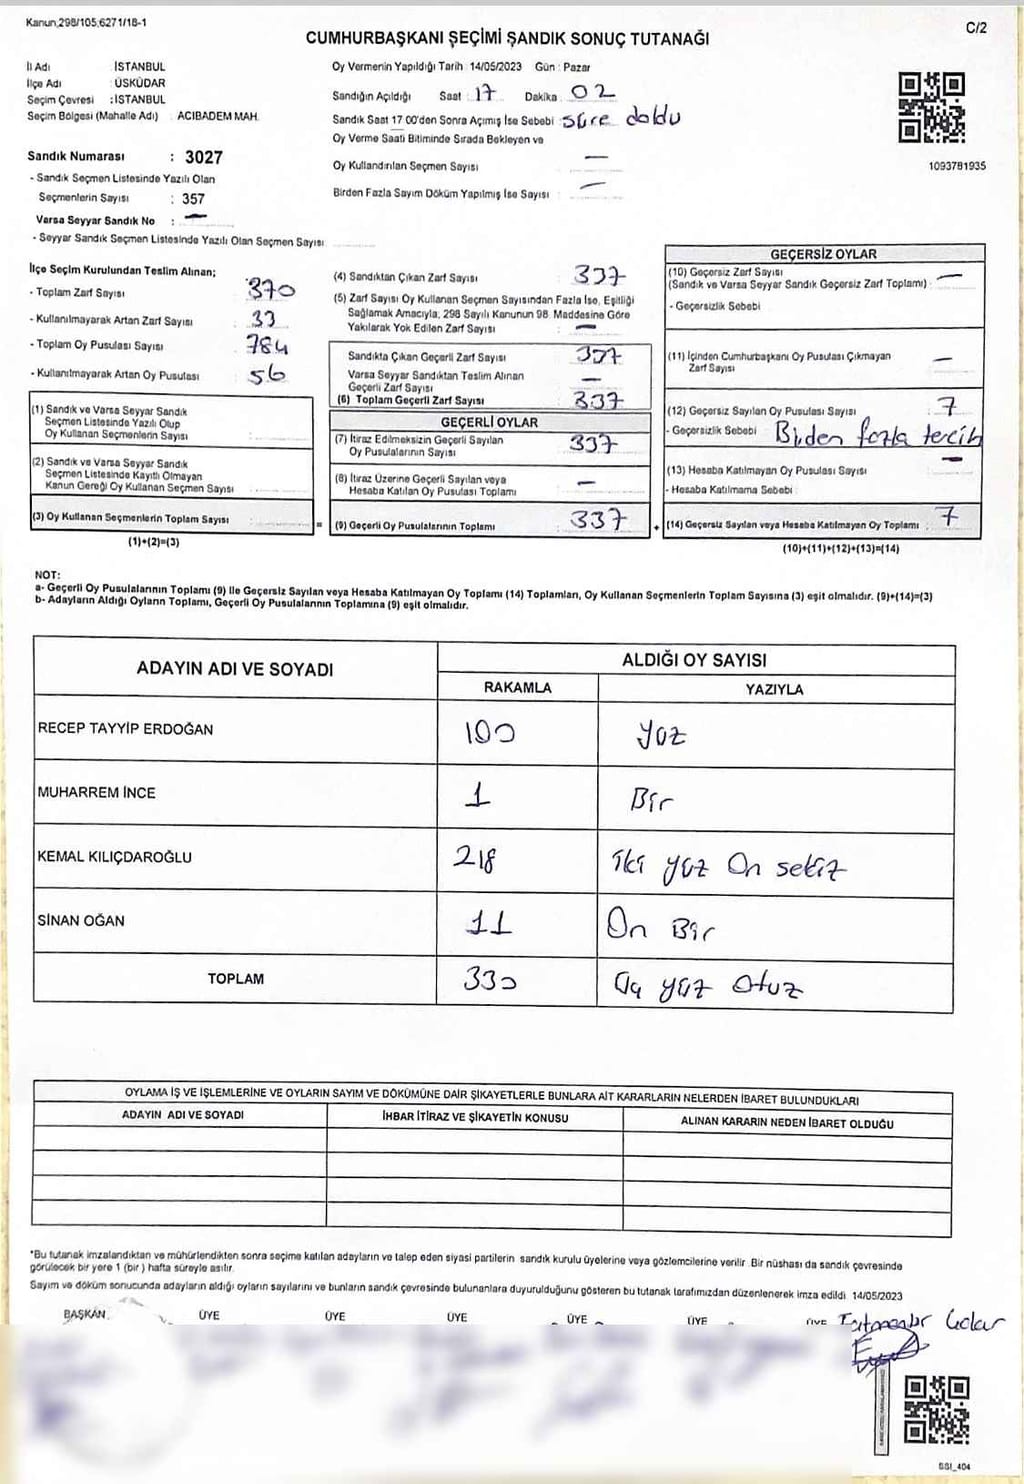 Kanun,298/105,6271/18-1
C/2
CUMHURBAŞKANI SEÇİMİ SANDIK SONUÇ TUTANAĞI
İl Adı : İSTANBUL
İlçe Adı : ÜSKÜDAR
Seçim Çevresi : İSTANBUL
Seçim Bölgesi (Mahalle Adı) : ACIBADEM MAH.
Sandık Numarası : 3027
- Sandık Seçmen Listesinde Yazılı Olan
Seçmenlerin Sayısı : 357
Varsa Seyyar Sandık No : —
- Seyyar Sandık Seçmen Listesinde Yazılı Olan Seçmen Sayısı
Oy Vermenin Yapıldığı Tarih : 14/05/2023 Gün : Pazar
Sandığın Açıldığı Saat : 17 Dakika : 02
Sandık Saat 17 00'den Sonra Açımış İse Sebebi : süre doldu
Oy Verme Saati Bitiminde Sırada Bekleyen ve
Oy Kullandırılan Seçmen Sayısı : —
Birden Fazla Sayım Döküm Yapılmış İse Sayısı : —
1093781935
İlçe Seçim Kurulundan Teslim Alınan;
- Toplam Zarf Sayısı : 370
- Kullanılmayarak Artan Zarf Sayısı : 33
- Toplam Oy Pusulası Sayısı : 784
- Kullanılmayarak Artan Oy Pusulası : 56
(1) Sandık ve Varsa Seyyar Sandık
Seçmen Listesinde Yazılı Olup
Oy Kullanan Seçmenlerin Sayısı
(2) Sandık ve Varsa Seyyar Sandık
Seçmen Listesinde Kayıtlı Olmayan
Kanun Gereği Oy Kullanan Seçmen Sayısı
(3) Oy Kullanan Seçmenlerin Toplam Sayısı :
(1)+(2)=(3)
=
(4) Sandıktan Çıkan Zarf Sayısı : 337
(5) Zarf Sayısı Oy Kullanan Seçmen Sayısından Fazla İse, Eşitliği
Sağlamak Amacıyla, 298 Sayılı Kanunun 98. Maddesine Göre
Yakılarak Yok Edilen Zarf Sayısı : —
Sandıkta Çıkan Geçerli Zarf Sayısı : 337
Varsa Seyyar Sandıktan Teslim Alınan
Geçerli Zarf Sayısı : —
(6) Toplam Geçerli Zarf Sayısı : 337
GEÇERLİ OYLAR
(7) İtiraz Edilmeksizin Geçerli Sayılan
Oy Pusulalarının Sayısı : 337
(8) İtiraz Üzerine Geçerli Sayılan veya
Hesaba Katılan Oy Pusulası Toplamı : —
(9) Geçerli Oy Pusulalarının Toplamı : 337
+
GEÇERSİZ OYLAR
(10) Geçersiz Zarf Sayısı
(Sandık ve Varsa Seyyar Sandık Geçersiz Zarf Toplamı) : —
- Geçersizlik Sebebi
(11) İçinden Cumhurbaşkanı Oy Pusulası Çıkmayan
Zarf Sayısı —
(12) Geçersiz Sayılan Oy Pusulası Sayısı : 7
- Geçersizlik Sebebi Birden fazla tercih
(13) Hesaba Katılmayan Oy Pusulası Sayısı : —
- Hesaba Katılmama Sebebi
(14) Geçersiz Sayılan veya Hesaba Katılmayan Oy Toplamı : 7
(10)+(11)+(12)+(13)=(14)
NOT:
a- Geçerli Oy Pusulalarının Toplamı (9) ile Geçersiz Sayılan veya Hesaba Katılmayan Oy Toplamı (14) Toplamları, Oy Kullanan Seçmenlerin Toplam Sayısına (3) eşit olmalıdır. (9)+(14)=(3)
b- Adayların Aldığı Oyların Toplamı, Geçerli Oy Pusulalarının Toplamına (9) eşit olmalıdır.
ADAYIN ADI VE SOYADI
ALDIĞI OY SAYISI
RAKAMLA YAZIYLA
RECEP TAYYİP ERDOĞAN 100 Yüz
MUHARREM İNCE 1 Bir
KEMAL KILIÇDAROĞLU 218 iki yüz On sekiz
SİNAN OĞAN 11 On Bir
TOPLAM 330 Üç yüz Otuz
OYLAMA İŞ VE İŞLEMLERİNE VE OYLARIN SAYIM VE DÖKÜMÜNE DAİR ŞİKAYETLERLE BUNLARA AİT KARARLARIN NELERDEN İBARET BULUNDUKLARI
ADAYIN ADI VE SOYADI İHBAR İTİRAZ VE ŞİKAYETİN KONUSU ALINAN KARARIN NEDEN İBARET OLDUĞU
*Bu tutanak imzalandıktan ve mühürlendikten sonra seçime katılan adayların ve talep eden siyasi partilerin sandık kurulu üyelerine veya gözlemcilerine verilir. Bir nüshası da sandık çevresinde
görülecek bir yere 1 (bir ) hafta süreyle asılır.
Sayım ve döküm sonucunda adayların aldığı oyların sayılarını ve bunların sandık çevresinde bulunanlara duyurulduğunu gösteren bu tutanak tarafımızdan düzenlenerek imza edildi 14/05/2023
BAŞKAN ÜYE ÜYE ÜYE ÜYE ÜYE ÜYE
SSI_404